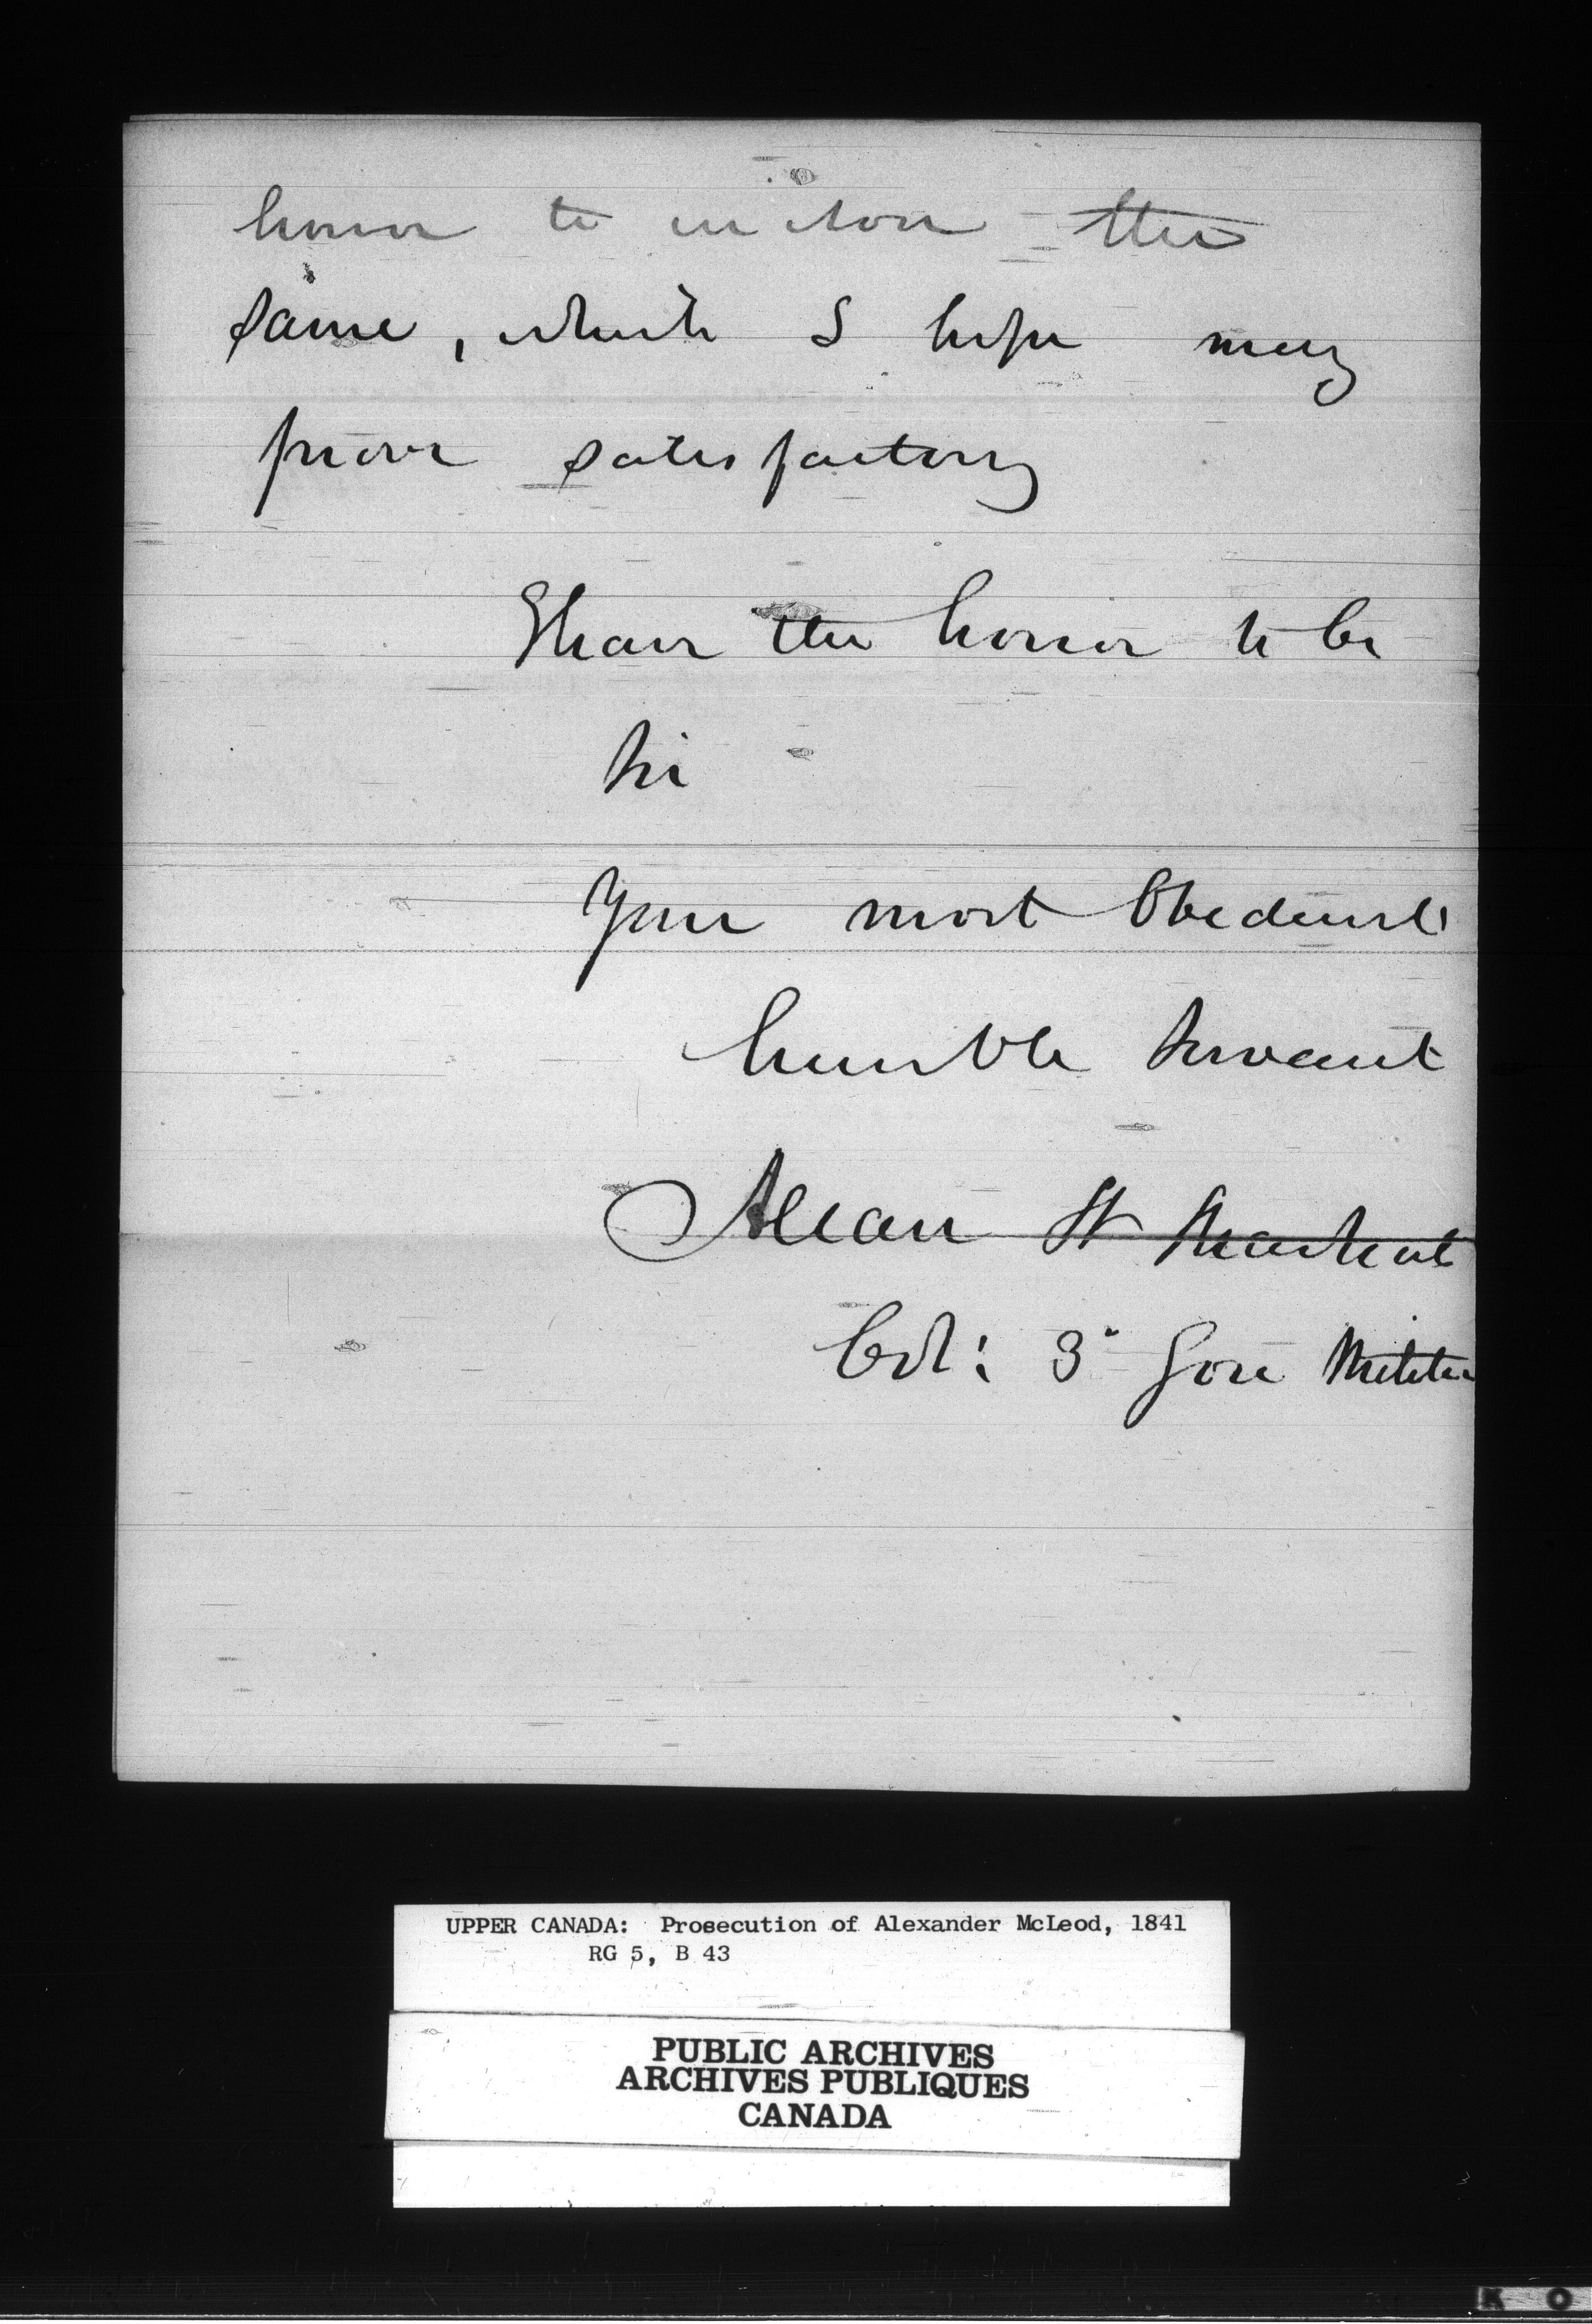 honor to enclose the
same, which I hope may
prove satisfactory
I have the honor to be
Sir
Your most Obedient
humble Servant
Allan N MacNab
Col: 3d Gore Militia
UPPER CANADA: Prosecution of Alexander McLeod, 1841
RG 5, B 43
PUBLIC ARCHIVES
ARCHIVES PUBLIQUES
CANADA
K O